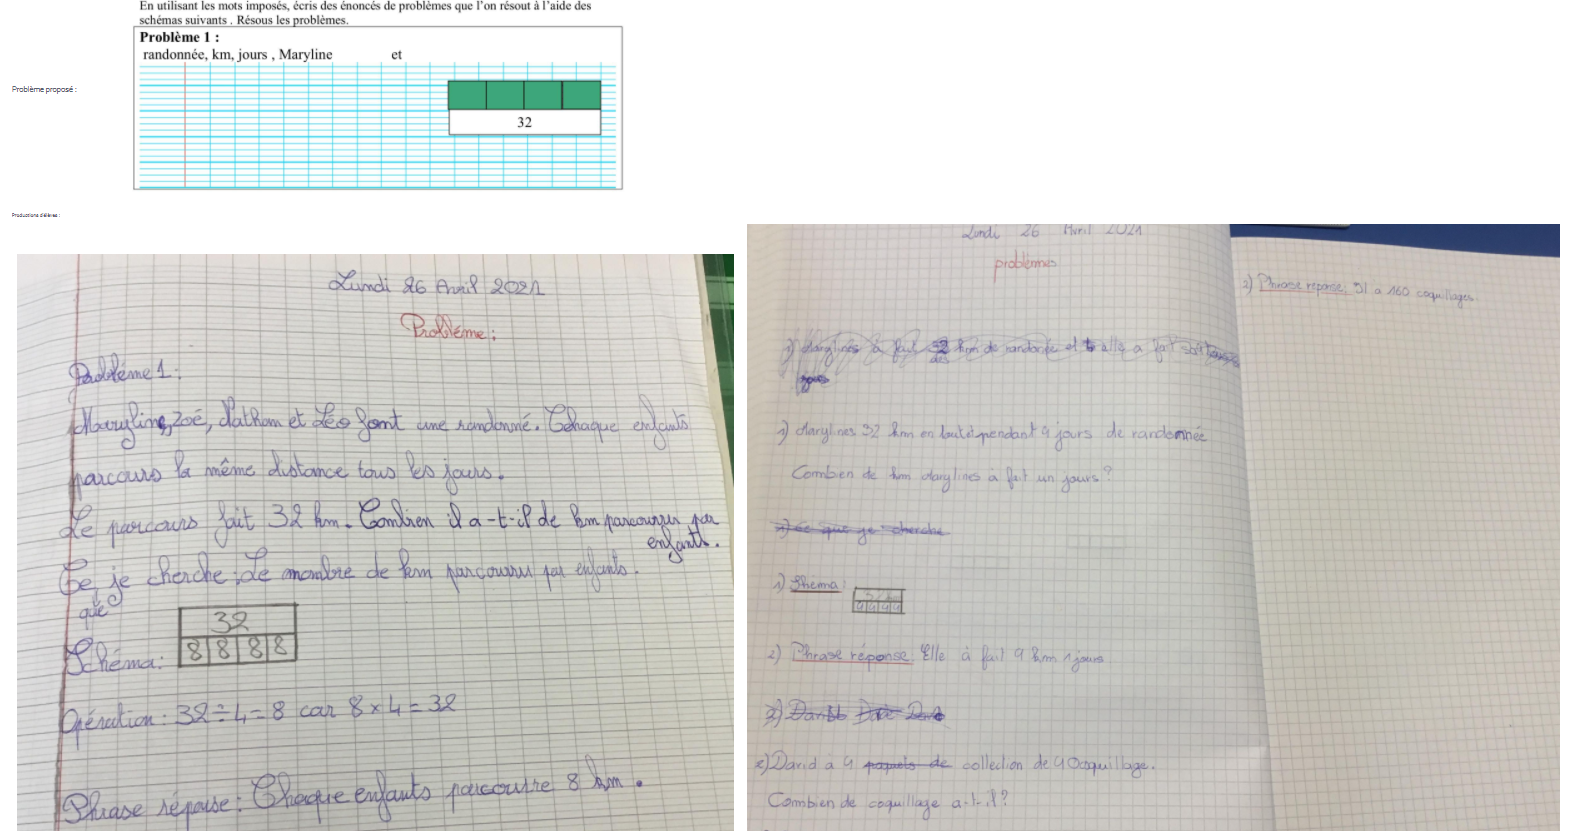 En utilisant les mots imposés, écris des énoncés de problèmes que l'on résout à l'aide des
schémas suivants . Résous les problèmes.
Problème 1 :
randonnée, km, jours , Maryline et
Problème proposé :
32
Productions d'élèves :
Lundi 26 Avril 2021
Probléme :
Probléme 1 :
Maryline, Zoé, Nathan et Léo font une randonné. Chaque enfants
parcours la même distance tous les jours.
Le parcours fait 32 km. Combien il a-t-il de km parcourus par
enfants.
Ce je cherche : Le nombre de km parcourru par enfants.
que
32
Schéma : 8 8 8 8
Opération : 32 ÷ 4 = 8 car 8 x 4 = 32
Phrase réponse : Chaque enfants parcourre 8 km.
Lundi 26 Avril 2021
problèmes
1) Marylines à fait 32 km de randonée et elle a fait
1) Marylines 32 km en touté pendant 4 jours de randonnée
Combien de km marylines à fait un jours ?
2) Ce que je cherche
1) Shema :
32 km
4 4 4 4
2) Phrase réponse Elle à fait 4 km 1 jours
2) David à 4 paquets de collection de 40 coquillage.
Combien de coquillage a-t-il ?
2) Phrase réponse : Il a 160 coquillages.